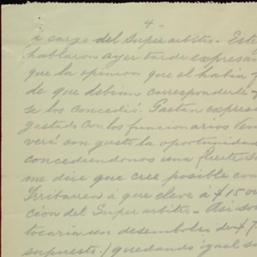 4-
á cargo del Superarbitro. Este
hablaron ayer tarde expresan
que la opinion que el habia
de que debian corresponderle
se los concedió. Gaetan expresa
gestado con los funcionarios
verá con gusto la oportunidad
concediendonos una fuerte
me dice que cree posible con
Irribarren á que eleve á $15.00
ción del Superarbitro. Asi
tocaria un desembolso de $7
supuesto.) quedando igual